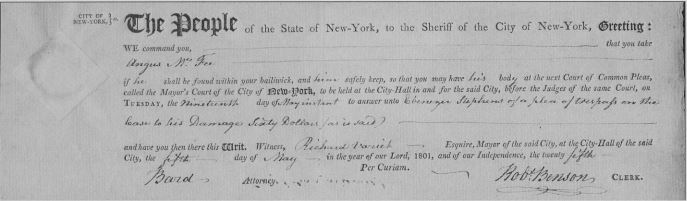 CITY OF NEW-YORK, } ss. The People of the State of New-York, to the Sheriff of the City of New-York, Greeting:
WE command you, that you take
Angus Mc Fee
if he shall be found within your bailiwick, and him safely keep, so that you may have his body at the next Court of Common Pleas,
called the Mayor's Court of the City of New-York, to be held at the City-Hall in and for the said City, before the Judges of the same Court, on
TUESDAY, the Nineteenth day of May instant to answer unto Ebenezer Stephens of a plea of trespass on the
Case to his Damage Sixty Dollars (as is said)
and have you then there this Writ. Witness, Richard Varick Esquire, Mayor of the said City, at the City-Hall of the said
City, the fifth day of May in the year of our Lord, 1801, and of our Independence, the twenty fifth
Per Curiam.
Baird Attorney. Robt. Benson CLERK.